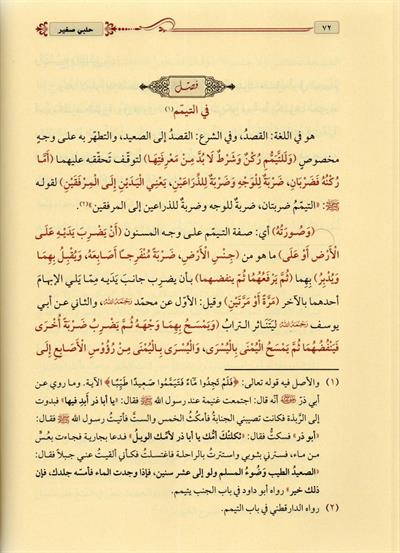 ٧٢
حلبي صغير
فصل
في التيمّم(١)
هو في اللغة: القصدُ، وفي الشرع: القصدُ إلى الصعيد، والتطهّر به على وجهٍ
مخصوصٍ (وَلِلتَّيَمُّمِ رُكْنٌ وَشَرْطٌ لَا بُدَّ مِنْ مَعرِفَتِهَا) لتوقّف تحقّقه عليهما (أَمَّا
رُكْنُهُ فَضَرْبَتَانِ، ضَرْبَةٌ لِلْوَجْهِ وَضَرْبَةٌ لِلذِّرَاعَيْنِ، يَعْنِي الْيَدَيْنِ إِلَى الْمِرْفَقَيْنِ) لقوله
ﷺ: «التيمّمُ ضربتان، ضربةٌ للوجه وضربةٌ للذراعين إلى المرفقين»(٢).
(وَصُورَتُهُ) أي: صفة التيمّم على وجه المسنون (أَنْ يَضْرِبَ يَدَيْهِ عَلَى
الْأَرْضِ أَوْ عَلَى) ما هو من (جِنْسِ الْأَرْضِ، ضَرْبَةً مُنْفَرِجًا أَصَابِعَهُ، وَيُقْبِلُ بِهِمَا
وَيُدْبِرُ) بِهِما (ثُمَّ يَرْفَعُهُمَا ثُمَّ ينفضهما) بأن يضرب جانبَ يَدَيه مِمّا يَلي الإبهامَ
أحدهما بالآخر (مَرَّةً أَوْ مَرَّتَيْنِ) وقيل: الأوّل عن محمّد رَحِمَهُ اللهُ، والثاني عن أبي
يوسف رَحِمَهُ اللهُ لِيَتَنَاثر الترابُ (وَيَمْسَحُ بِهِمَا وَجْهَهُ ثُمَّ يَضْرِبُ ضَرْبَةً أُخْرَى
فَيَنْفُضُهُمَا ثُمَّ يَمْسَحُ الْيُمْنَى بِالْيُسْرَى، وَالْيُسْرَى بِالْيُمْنَى مِنْ رُؤُوسِ الْأَصَابِعِ إِلَى
(١) والأصل فيه قوله تعالى: ﴿فَلَمْ تَجِدُوا مَاءً فَتَيَمَّمُوا صَعِيدًا طَيِّبًا﴾ الآية. وما روي عن
أبي ذرّ أنّه قال: اجتمعت غنيمة عند رسول الله ﷺ فقال: «يا أبا ذر أبد فيها» فبدوت
إلى الرَّبذة فكانت تصيبني الجنابةُ فأمكُثُ الخمس والستَّ فأتيتُ رسول الله ﷺ فقال:
«أبو ذر» فسكتُّ فقال: «ثكلتكَ أمُّك يا أبا ذر لأمك الويلُ» فدعا بجارية فجاءت بعُسٍّ
من ماء، فسترني بثوبي واستترتُ بالراحلة فاغتسلتُ فكأني ألقيتُ عني جبلًا فقال:
«الصعيدُ الطيب وَضُوءُ المسلم ولو إلى عشر سنين، فإذا وجدت الماء فأمسه جلدك، فإن
ذلك خير» رواه أبو داود في باب الجنب يتيمم.
(٢) رواه الدارقطني في باب التيمم.